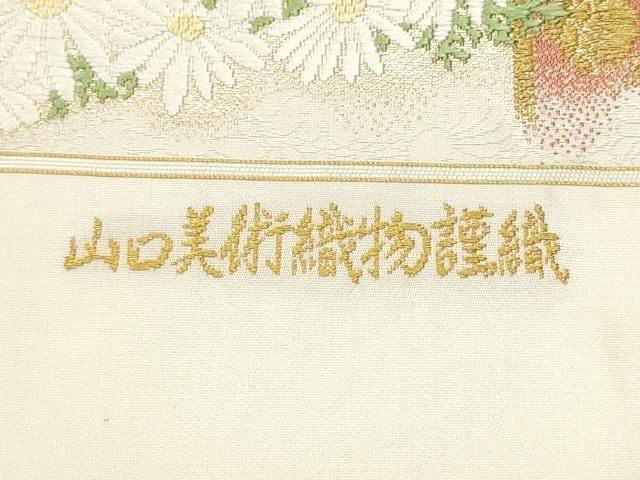 山口美術織物謹織